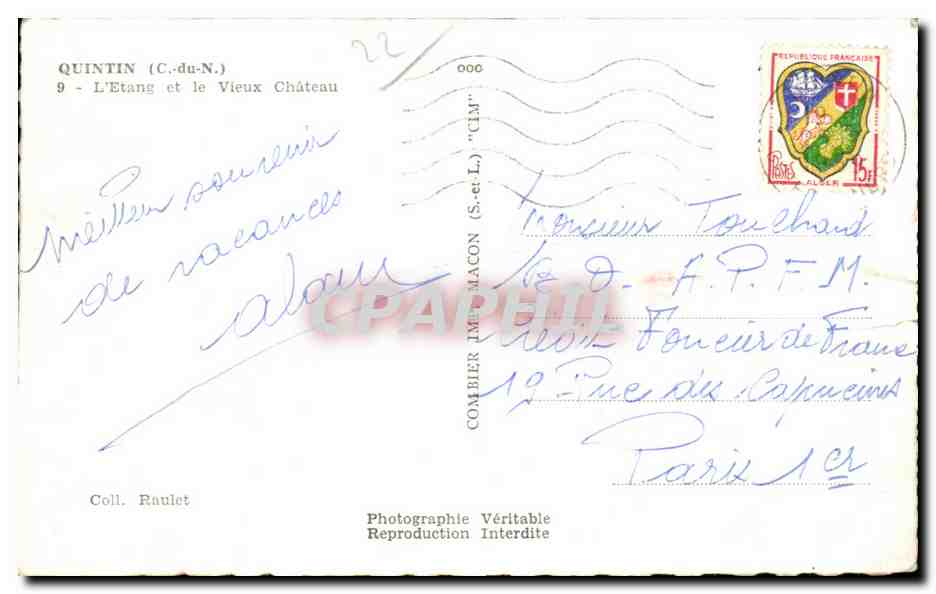 22
QUINTIN (C.-du-N.)
9 - L'Etang et le Vieux Château
Meilleur souvenir
de vacances
Alain
Coll. Raulet
COMBIER IMP. MACON (S.-et-L.) "CIM"
Photographie Véritable
Reproduction Interdite
REPUBLIQUE FRANÇAISE
POSTES
ALGER
15F
Monsieur Touchard
D - A.P.F.M.
Foncier de France
19 Rue des Capucines
Paris 1er
CPAPHIL